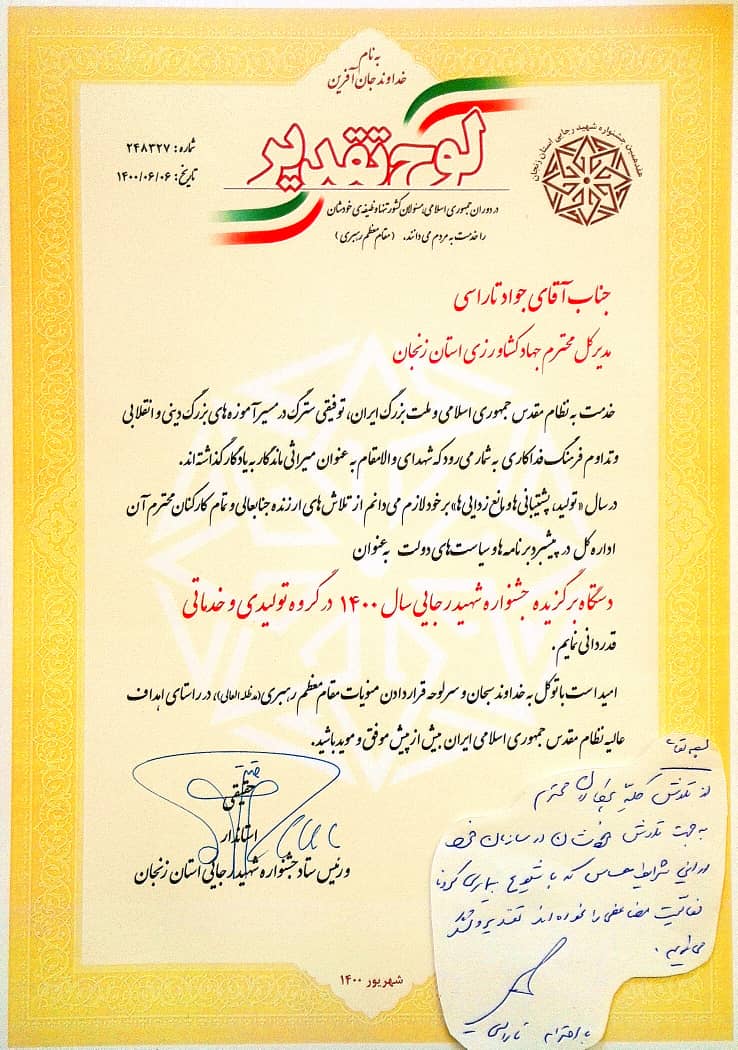 به نام
خداوند جان آفرین
لوح تقدیر
هفدهمین جشنواره شهید رجایی استان زنجان
شماره: ۲۴۸۳۲۷
تاریخ: ۱۴۰۰/۰۶/۰۶
در دوران جمهوری اسلامی، مسئولان کشور تنها وظیفه‌ی خودشان
را خدمت به مردم می دانند. (مقام معظم رهبری)
جناب آقای جواد تاراسی
مدیر کل محترم جهاد کشاورزی استان زنجان
خدمت به نظام مقدس جمهوری اسلامی و ملت بزرگ ایران، توفیقی سترگ در مسیر آموزه های بزرگ دینی و انقلابی
و تداوم فرهنگ فداکاری به شمار می رود که شهدای والامقام به عنوان میراثی ماندگار به یادگار گذاشته اند.
در سال «تولید، پشتیبانی ها و مانع زدایی ها» بر خود لازم می دانم از تلاش های ارزنده جنابعالی و تمام کارکنان محترم آن
اداره کل در پیشبرد برنامه ها و سیاست های دولت به عنوان
دستگاه برگزیده جشنواره شهید رجایی سال ۱۴۰۰ در گروه تولیدی و خدماتی
قدردانی نمایم.
امید است با توکل به خداوند سبحان و سرلوحه قرار دادن منویات مقام معظم رهبری (مدظله العالی)، در راستای اهداف
عالیه نظام مقدس جمهوری اسلامی ایران بیش از پیش موفق و موید باشید.
حقیقی
استاندار
و رئیس ستاد جشنواره شهید رجایی استان زنجان
از تلاش کلیه همکاران محترم
به جهت تلاش در سازمان
در این شرایط حساس که با شیوع بیماری کرونا
فعالیت مضاعفی را نموده اند تقدیر و تشکر
می نمایم.
با احترام تاراسی
شهریور ۱۴۰۰